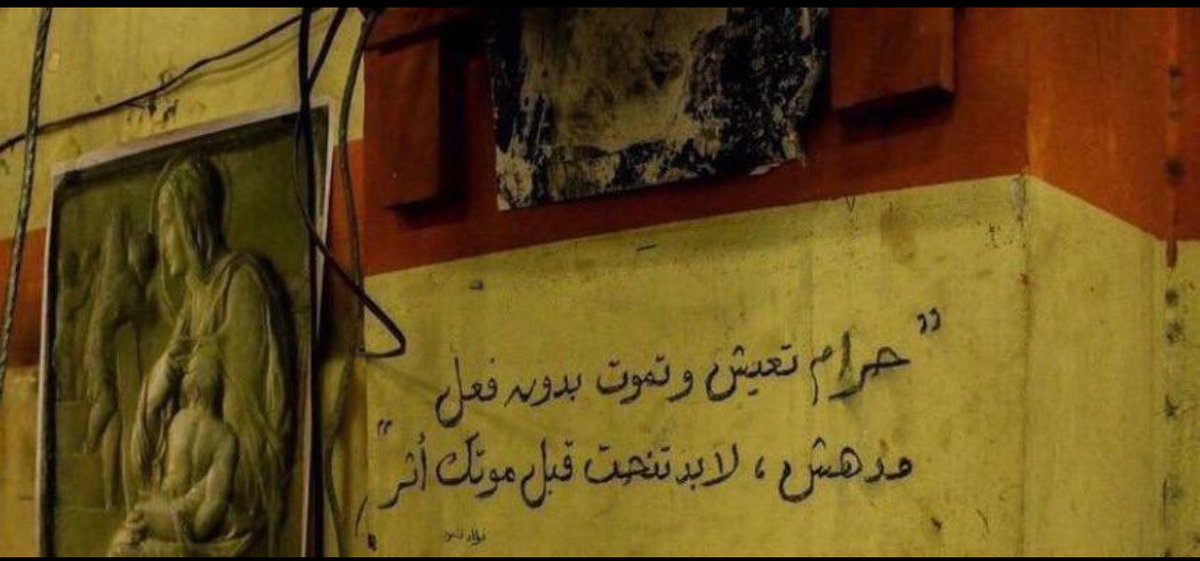 "حرام تعيش وتموت بدون فعل
مدهش، لابد تنحت قبل موتك أثر"